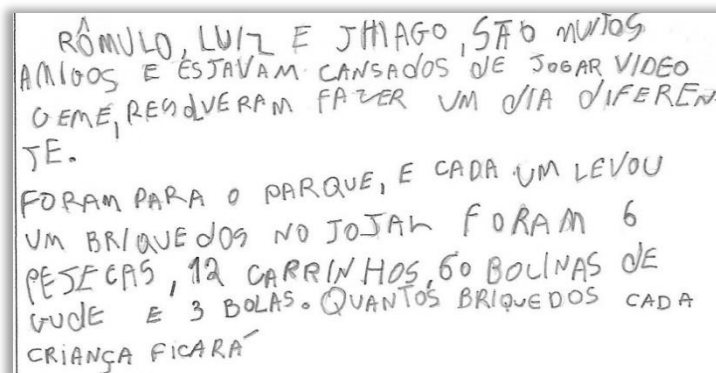 RÔMULO, LUIZ E JHIAGO, SÃO MUITOS
AMIGOS E ESTAVAM CANSADOS DE JOGAR VIDEO
GEME, RESOLVERAM FAZER UM DIA DIFEREN
TE.
FORAM PARA O PARQUE, E CADA UM LEVOU
UM BRIQUEDOS NO TOTAL FORAM 6
PETECAS, 12 CARRINHOS, 60 BOLINAS DE
GUDE E 3 BOLAS. QUANTOS BRIQUEDOS CADA
CRIANÇA FICARÁ